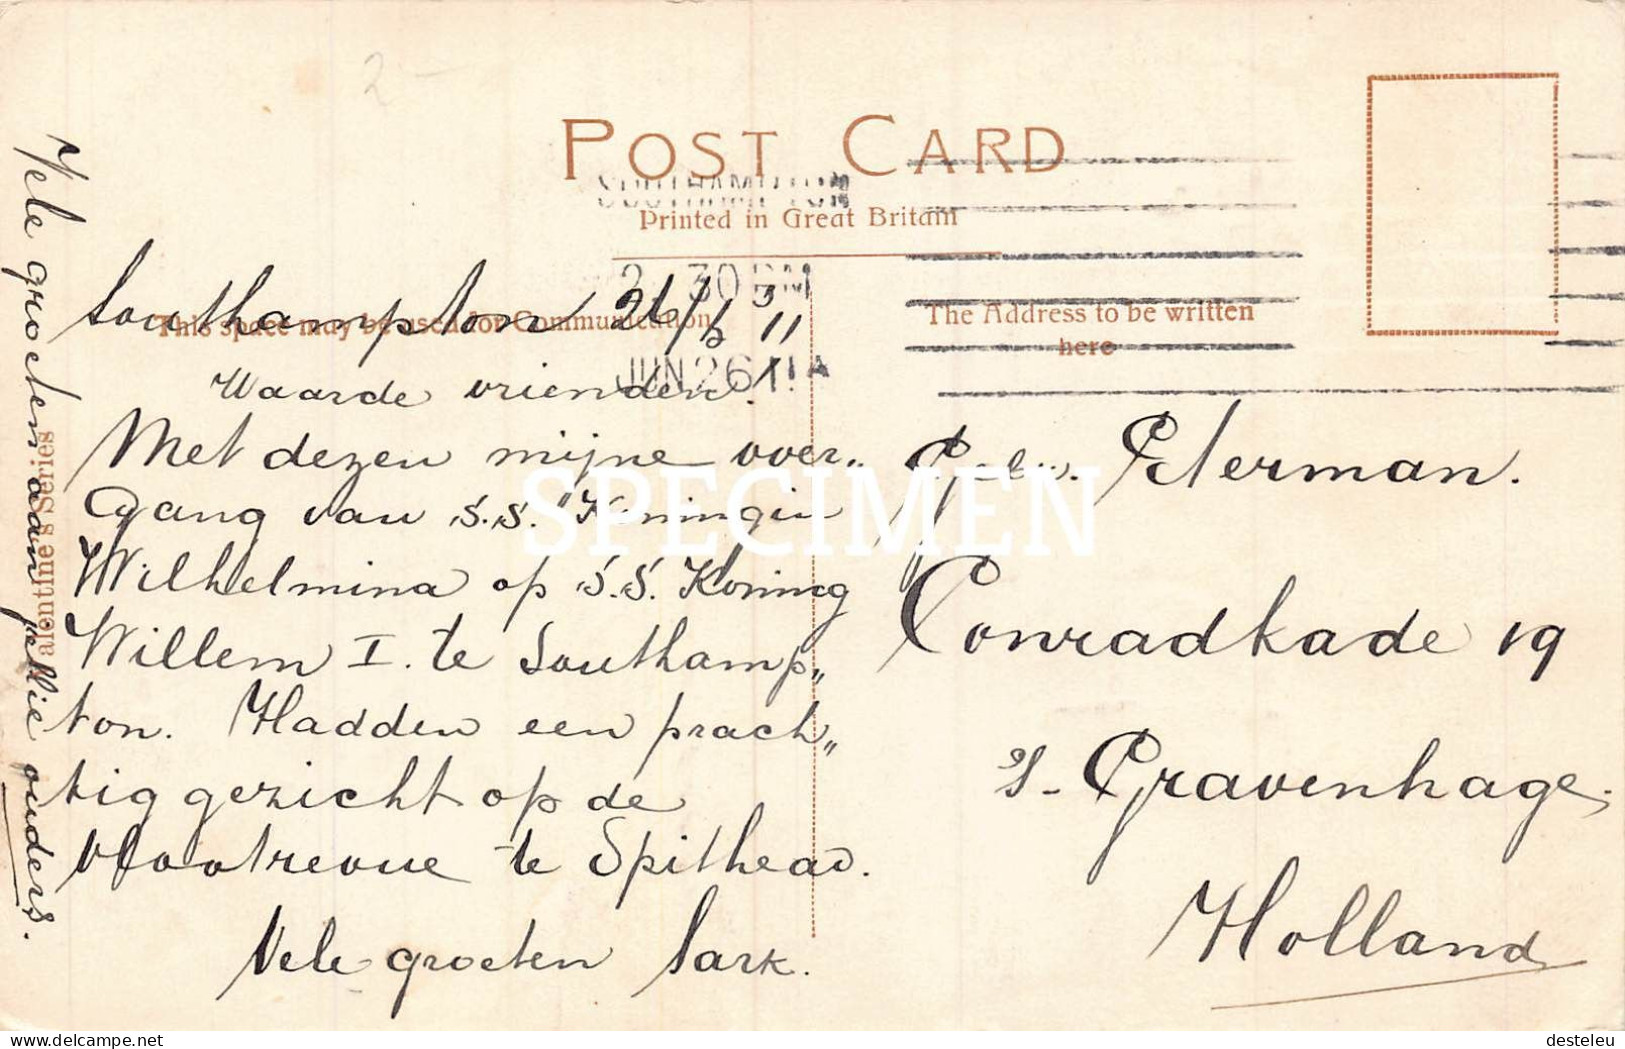 2-
POST CARD
SOUTHAMPTON
Printed in Great Britain
2 30 PM
JUN 26 11 A
This space may be used for Communication
The Address to be written
here
Valentine's Series
Southampton 26/6 11
Waarde vrienden!
Met dezen mijne over„
gang van s.s. "Koningin
Wilhelmina op s.s. Koning
Willem I. te Southamp„
ton. Hadden een prach„
tig gezicht op de
vlootrevue te Spithead.
Vele groeten Sark.
Vele groeten aan jellie ouders.
Peterman.
Conradkade 19
s-Gravenhage.
Holland
SPECIMEN
delcampe.net
desteleu